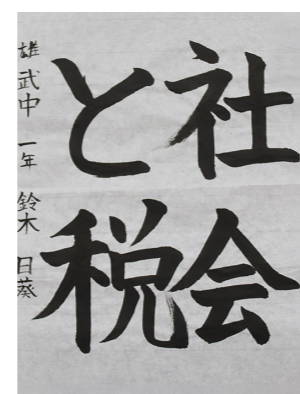 社会
と税
雄武中 一年 鈴木 日葵